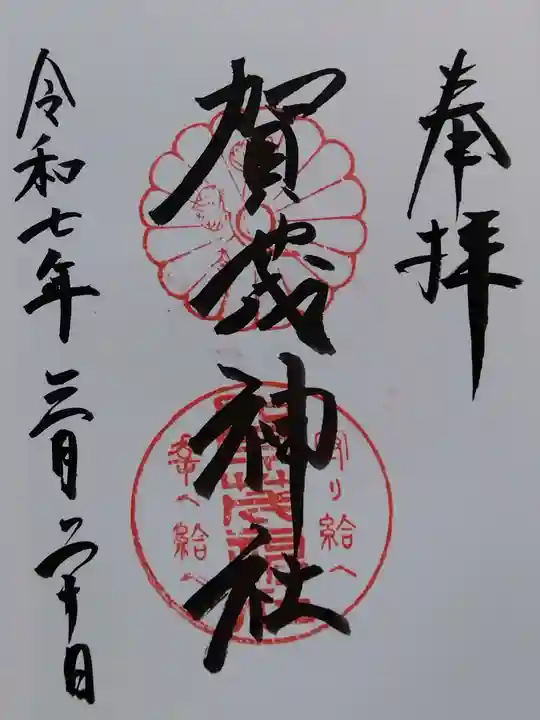 奉拝
賀茂神社
守り給へ
幸へ給へ
令和七年三月二十日